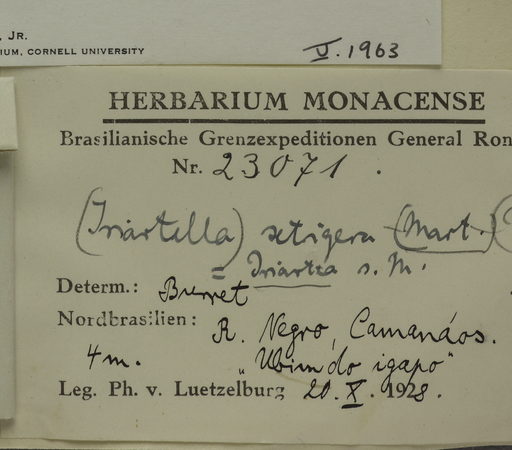 , JR.
IUM, CORNELL UNIVERSITY
V. 1963
HERBARIUM MONACENSE
Brasilianische Grenzexpeditionen General Ron
Nr. 23071.
(Iriartella) setigera (Mart.)
= Iriartea s. M.
Determ.: Burret
Nordbrasilien: R. Negro, Camanáos.
4 m. "Ubim do igapo"
Leg. Ph. v. Luetzelburg 20. X. 1928.